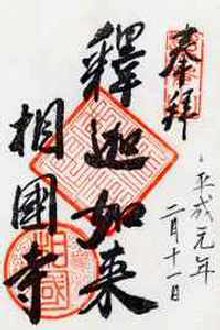 奉拝
平成元年
二月十一日
釋迦如来
相國寺